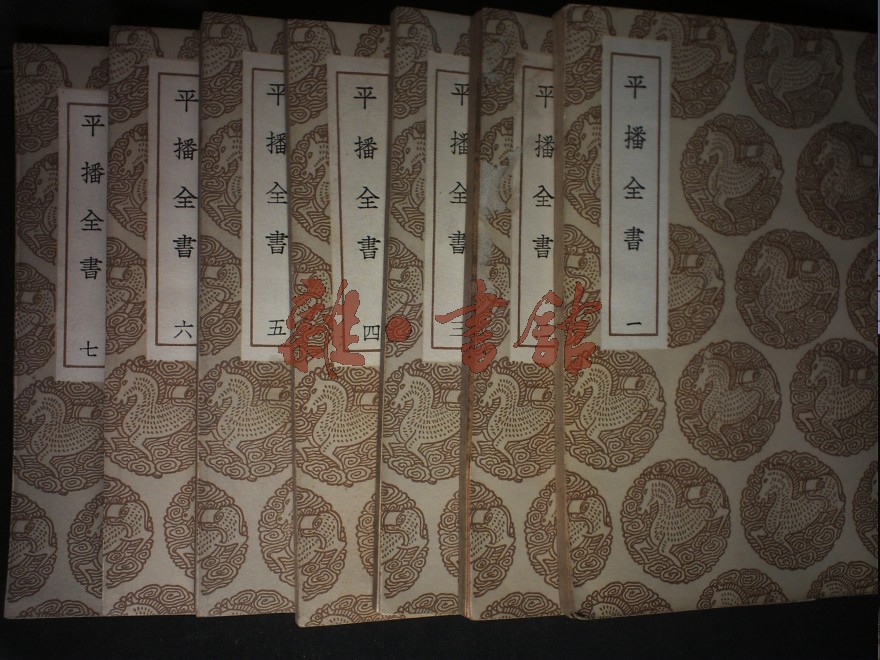 平播全書 一
平播全書
平播全書 三
平播全書 四
平播全書 五
平播全書 六
平播全書 七
雜·書館